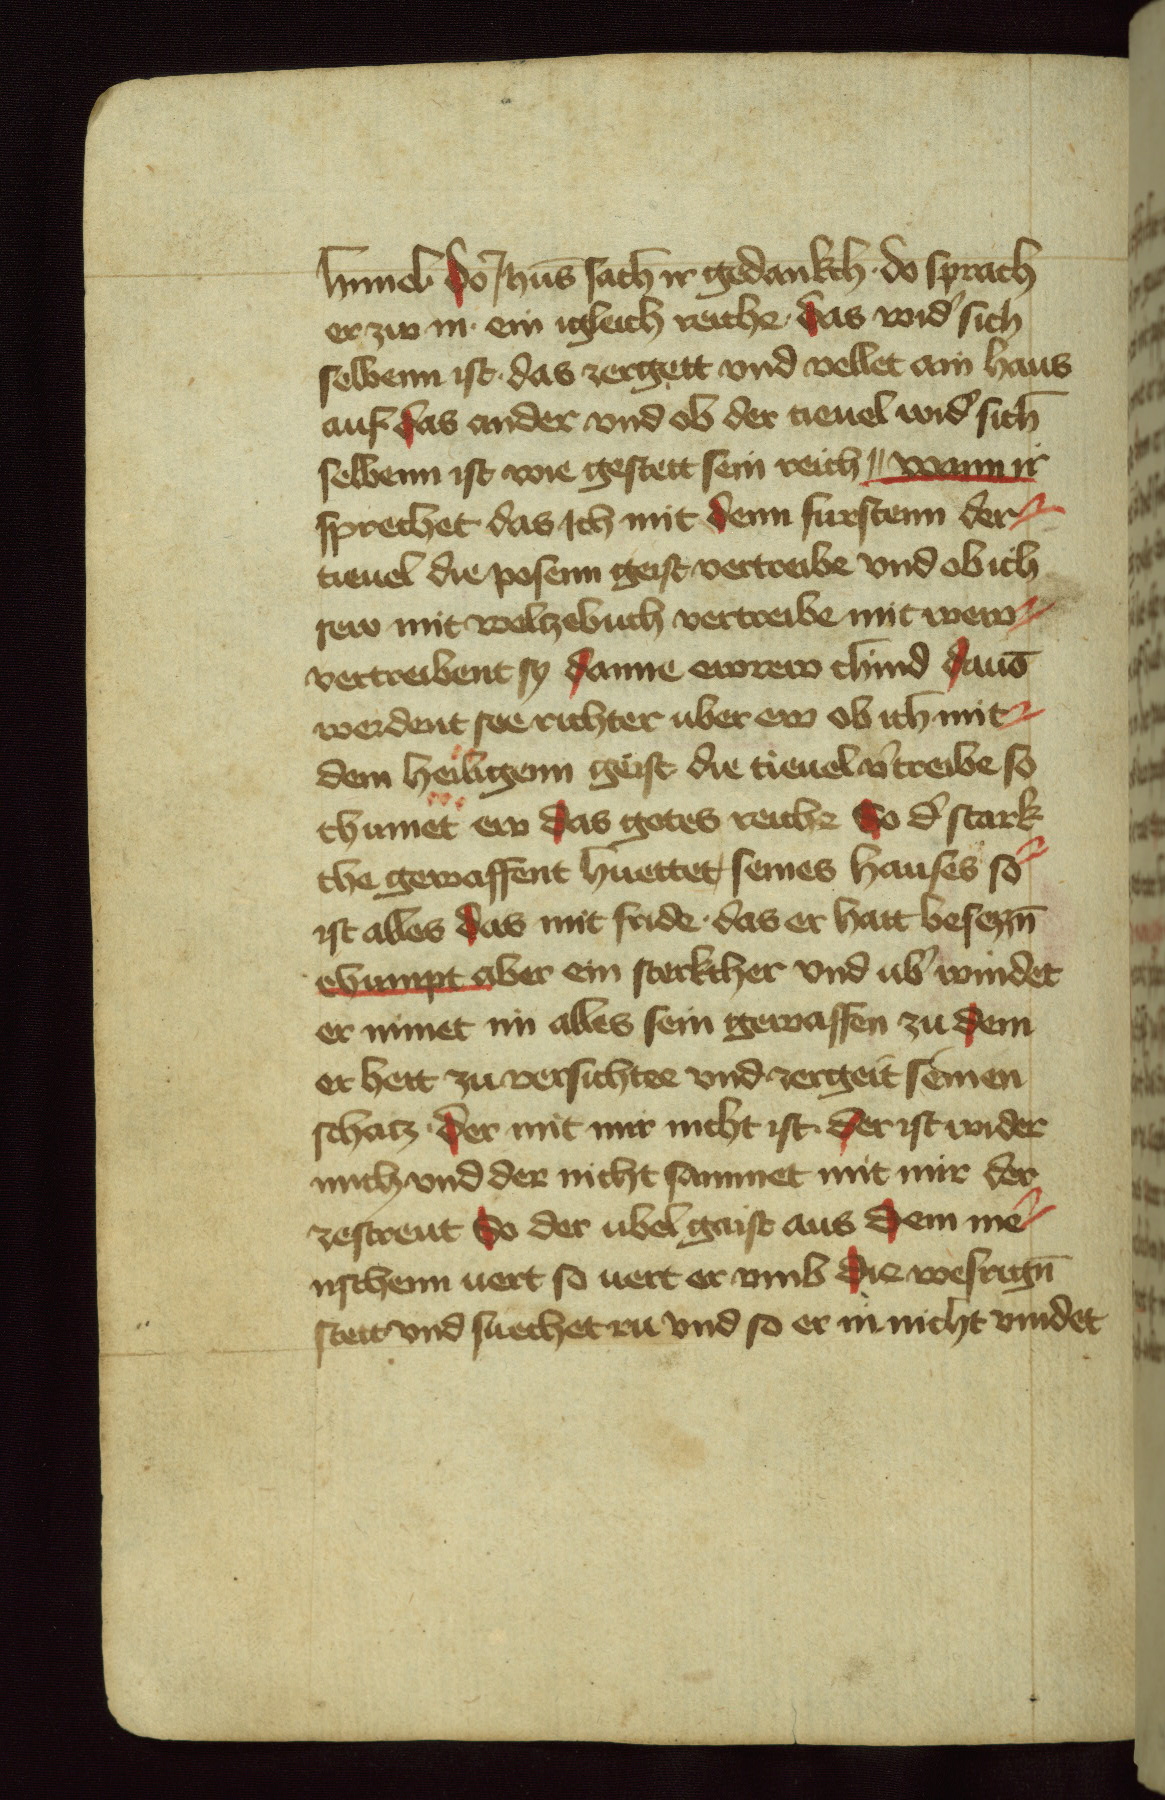 himel Do Jhūs sach ir gedankch · do sprach
er zw in · ein igleich reiche · das wid' sich
selbenn ist · das zergett vnd vellet ain haus
auf das ander vnd ob der tieuel wid' sich
selbenn ist wie gestett sein reich // wann ir
sprechet das ich mit denn furstenn der
tieuel die posenn geist vertreibe vnd ob ich
sew mit welzebuch vertreibe mit wew
vertreibent sy danne ewrew chind daūō
werdent see richter uber ew ob ich mit
dem heiligenn geist die tieuel v'treibe so
chumet ew das gotes reiche So d' stark
che gewaffent huettet seines hauses so
ist alles das mit fride · das er hatt besezzn̄
chumpt aber ein sterkcher vnd ub' windet
er nimet im alles sein gewaffen zu dem
er hett zu versichtee vnd zergeit seinen
schatz · der mit mir nicht ist · der ist wider
mich vnd der nicht sammet mit mir der
zestreut So der ubel gaist aus dem me
nschenn uert so uert er vmb die wesrign̄
stett vnd suechet ru vnd so er in nicht vindet